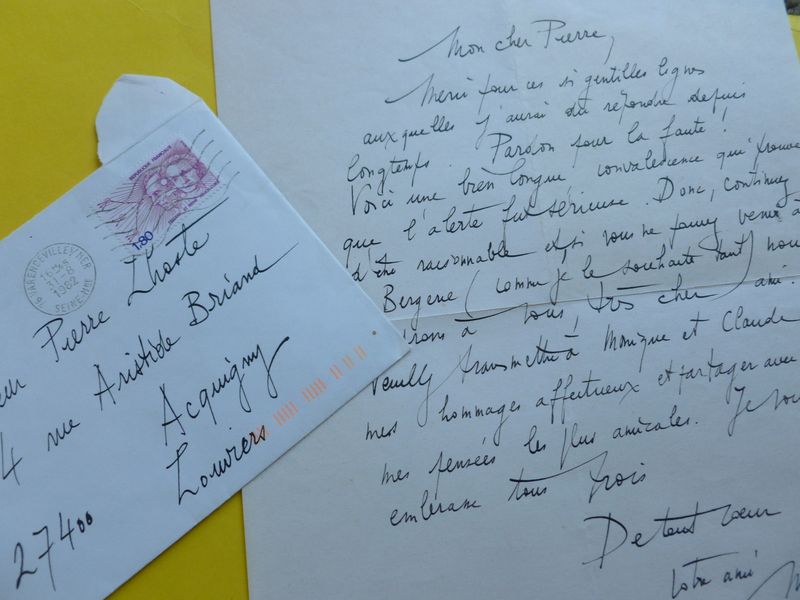 Mon cher Pierre,
Merci pour ces si gentilles lignes
auxquelles j'aurai du répondre depuis
longtemps. Pardon pour la faute!
Voici une bien longue convalescence qui prouve
que l'alerte fut sérieuse. Donc, continuez
d'être raisonnable et si vous ne pouvez venir à
Bergerie (comme je le souhaite tant) nous
irons à vous, très cher ami.
Veuillez transmettre à Monique et Claude
mes hommages affectueux et partager avec
mes pensées les plus amicales. Je vous
embrasse tous trois
De tout coeur
Votre ami
REPUBLIQUE FRANCAISE
1,80
VARENGEVILLE S/MER
16H
31-8
1982
SEINE-MME
Pierre Lhoste
4 rue Aristide Briand
Acquigny
Louviers
27400